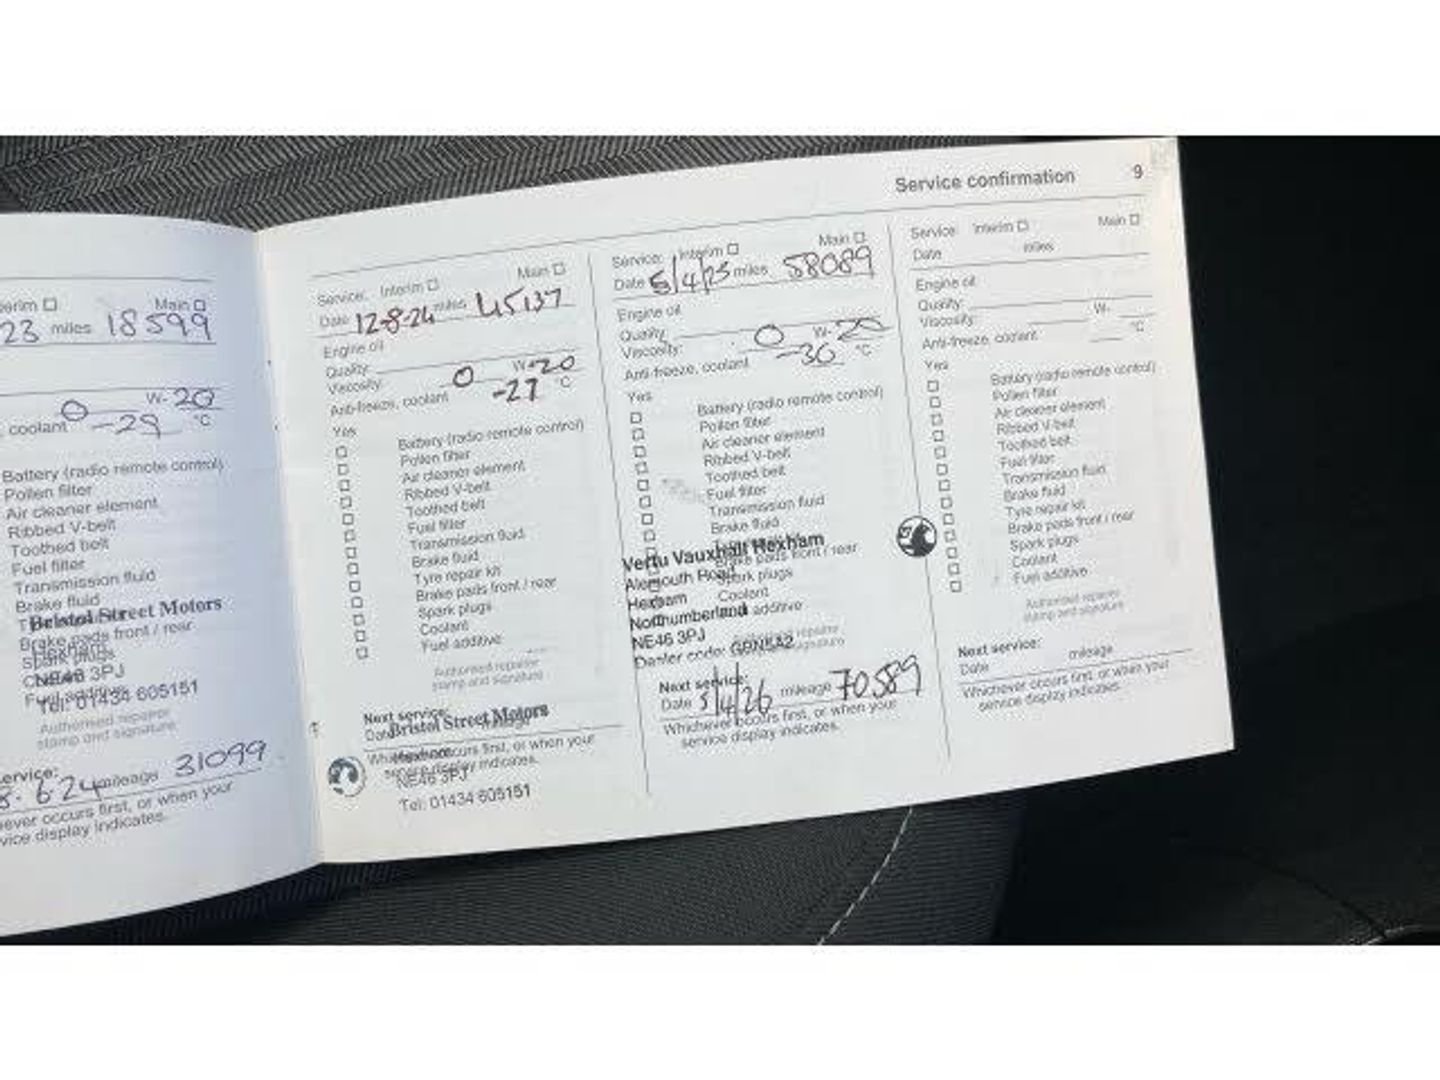 Service confirmation 9
Main
23 miles 18599
W- 20
coolant 0
-29 °C
Battery (radio remote control)
Pollen filter
Air cleaner element
Ribbed V-belt
Toothed belt
Fuel filter
Transmission fluid
Brake fluid
Bristol Street Motors
Brake pads front / rear
Hexham
Spark plugs
NE46 3PJ
Tel: 01434 605151
Authorised repairer
stamp and signature
6-24 mileage 31099
occurs first, or when your
display indicates.
Service: Interim Main
Date 12-8-24 miles 45137
Engine oil
Quality:
Viscosity: 0 W-20
Anti-freeze, coolant -27 °C
Yes
Battery (radio remote control)
Pollen filter
Air cleaner element
Ribbed V-belt
Toothed belt
Fuel filter
Transmission fluid
Brake fluid
Tyre repair kit
Brake pads front / rear
Spark plugs
Coolant
Fuel additive
Authorised repairer
stamp and signature
Next service:
Date mileage
Bristol Street Motors
Whichever occurs first, or when your
Hexham
service display indicates.
NE46 3PJ
Tel: 01434 605151
Service: Interim Main
Date 5/4/25 miles 58089
Engine oil
Quality:
Viscosity: 0 W-20
Anti-freeze, coolant -36 °C
Yes
Battery (radio remote control)
Pollen filter
Air cleaner element
Ribbed V-belt
Toothed belt
Fuel filter
Transmission fluid
Brake fluid
Vertu Vauxhall Hexham
Brake pads front / rear
Alemouth Road
Spark plugs
Hexham
Coolant
Northumberland
additive
NE46 3PJ
Dealer code: GBN5A2
Next service:
Date 5/4/26 mileage 70589
Whichever occurs first, or when your
service display indicates.
Service: Interim Main
Date miles
Engine oil
Quality:
Viscosity: W-
Anti-freeze, coolant °C
Yes
Battery (radio remote control)
Pollen filter
Air cleaner element
Ribbed V-belt
Toothed belt
Fuel filter
Transmission fluid
Brake fluid
Tyre repair kit
Brake pads front / rear
Spark plugs
Coolant
Fuel additive
Authorised repairer
stamp and signature
Next service:
Date mileage
Whichever occurs first, or when your
service display indicates.